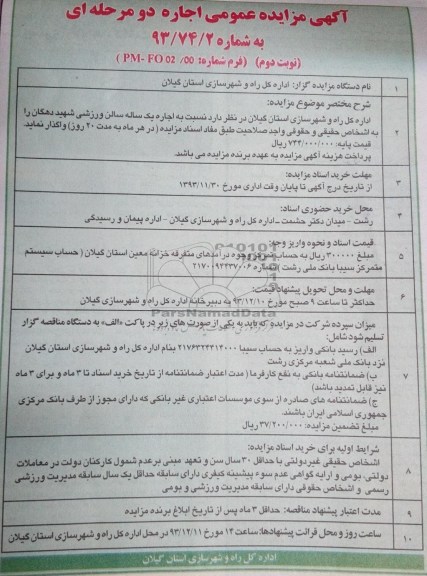 آگهی مزایده عمومی اجاره دو مرحله ای
به شماره ۹۳/۷۴/۲
(نوبت دوم) (فرم شماره: PM- FO 02 /00 )
۱ نام دستگاه مزایده گزار: اداره کل راه و شهرسازی استان گیلان
۲ شرح مختصر موضوع مزایده:
اداره کل راه و شهرسازی استان گیلان در نظر دارد نسبت به اجاره یک ساله سالن ورزشی شهید دهکان را
به اشخاص حقیقی و حقوقی واجد صلاحیت طبق مفاد اسناد مزایده ( در هر ماه به مدت ۲۰ روز) واگذار نماید.
قیمت پایه: ۷۴۴/۰۰۰/۰۰۰ ریال
پرداخت هزینه آگهی مزایده به عهده برنده مزایده می باشد.
۳ مهلت خرید اسناد مزایده:
از تاریخ درج آگهی تا پایان وقت اداری مورخ ۱۳۹۳/۱۱/۳۰
۴ محل خرید حضوری اسناد:
رشت - میدان دکتر حشمت - اداره کل راه و شهرسازی گیلان - اداره پیمان و رسیدگی
۵ قیمت اسناد و نحوه واریز وجه:
مبلغ ۳۰۰۰۰۰ ریال به حساب تمرکز وجوه درآمدهای متفرقه خزانه معین استان گیلان ( حساب سیستم
متمرکز سیبا بانک ملی رشت ) شماره ۲۱۷۰۰۹۲۴۳۷۰۰۶
۶ مهلت و محل تحویل پیشنهاد قیمت:
حداکثر تا ساعت ۹ صبح مورخ ۹۳/۱۲/۱۰ به دبیرخانه اداره کل راه و شهرسازی گیلان
۷ میزان سپرده شرکت در مزایده که باید به یکی از صورت های زیر در پاکت «الف» به دستگاه مناقصه گزار
تسلیم شود شامل:
الف) رسید بانکی واریز به حساب سیبا ۲۱۷۶۳۲۴۳۱۴۰۰۰ بنام اداره کل راه و شهرسازی استان گیلان
نزد بانک ملی شعبه مرکزی رشت
ب) ضمانتنامه بانکی به نفع کارفرما ( مدت اعتبار ضمانتنامه از تاریخ خرید اسناد تا ۳ ماه و برای ۳ ماه
نیز قابل تمدید باشد)
ج) ضمانتنامه های صادره از سوی موسسات اعتباری غیر بانکی که دارای مجوز از طرف بانک مرکزی
جمهوری اسلامی ایران باشند.
مبلغ تضمین مزایده: ۳۷/۲۰۰/۰۰۰ ریال
۸ شرایط اولیه برای خرید اسناد مزایده:
اشخاص حقیقی غیردولتی با حداقل ۳۰ سال سن و تعهد مبنی بر عدم شمول کارکنان دولت در معاملات
دولتی، بومی و ارایه گواهی عدم سوء پیشینه کیفری دارای سابقه حداقل یک سال سابقه مدیریت ورزشی
رسمی و اشخاص حقوقی دارای سابقه مدیریت ورزشی و بومی
۹ مدت اعتبار پیشنهاد مناقصه: حداقل ۳ ماه پس از تاریخ ابلاغ برنده مزایده
۱۰ ساعت روز و محل قرائت پیشنهادها: ساعت ۱۴ مورخ ۹۳/۱۲/۱۱ در محل اداره کل راه و شهرسازی استان گیلان
اداره کل راه و شهرسازی استان گیلان
ParsNamadData